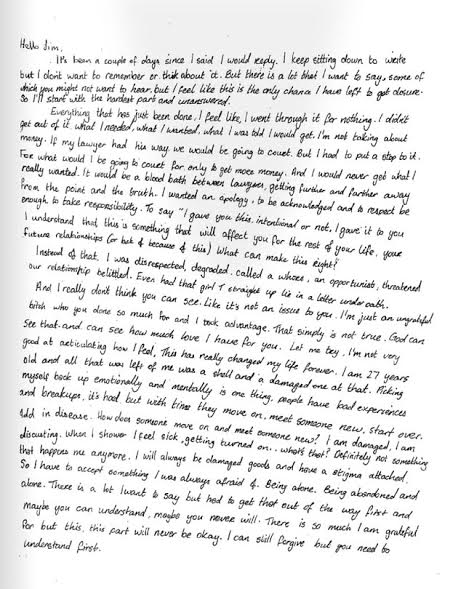 Hello Jim,
It's been a couple of days since I said I would reply. I keep sitting down to write
but I dont want to remember or think about it. But there is a lot that I want to say, some of
which you might not want to hear, but I feel like this is the only chance I have left to get closure.
So I'll start with the hardest part and unanswered.
Everything that has just been done, I feel like, I went through it for nothing. I didn't
get out of it, what I needed, what I wanted, what I was told I would get. I'm not talking about
money. If my lawyer had his way we would be going to court. But I had to put a stop to it.
For what would I be going to court for, only to get more money. And I would never get what I
really wanted. It would be a blood bath between lawyers, getting further and farther away
from the point and the truth. I wanted an apology, to be acknowledged and to respect be
enough to take responsibility. To say "I gave you this, intentional or not, I gave it to you
I understand that this is something that will affect you for the rest of your life, your
future relationships (or lack of because of this) What can make this right?"
Instead of that, I was disrespected, degraded, called a whore, an opportunist, threatened
our relationship belittled. Even had that girl T straight up lie in a letter under oath.
And I really dont think you can see. Like it's not an issue to you. I'm just an ungrateful
bitch who you done so much for and I took advantage. That simply is not true. God can
see that and can see how much love I have for you. Let me try, I'm not very
good at articulating how I feel. This has really changed my life forever. I am 27 years
old and all that was left of me was a shell and a damaged one at that. Picking
myself back up emotionally and mentally is one thing, people have bad experiences
and breakups, it's hard but with time they move on, meet someone new, start over.
Add in disease. How does someone move on and meet someone new? I am damaged, I am
discusting. When I shower I feel sick, getting turned on.. what's that? Definitely not something
that happens me anymore. I will always be damaged goods and have a stigma attached.
So I have to accept something I was always afraid of. Being alone. Being abandoned and
alone. There is a lot I want to say but had to get that out of the way first and
maybe you can understand, maybe you never will. There is so much I am grateful
for but this, this part will never be okay. I can still forgive but you need to
understand first.